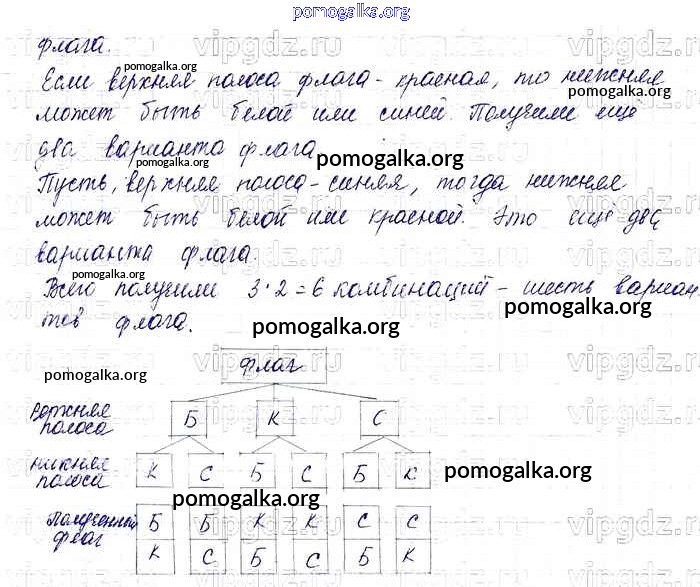 pomogalka.org
флага.
Если верхняя полоса флага - красная, то нижняя
может быть белой или синей. Получили ещё
два варианта флага.
Пусть, верхняя полоса - синяя, тогда нижняя
может быть белой или красной. Это ещё два
варианта флага.
Всего получили 3·2=6 комбинаций - шесть вариан
тов флага.
флаг
Верхняя полоса Б К С
нижняя полоса К С Б С Б К
Полученный флаг Б Б К К С С
К С Б С Б К
pomogalka.org
pomogalka.org
pomogalka.org
pomogalka.org
pomogalka.org
pomogalka.org
pomogalka.org
pomogalka.org
pomogalka.org
pomogalka.org
vipgdz.ru